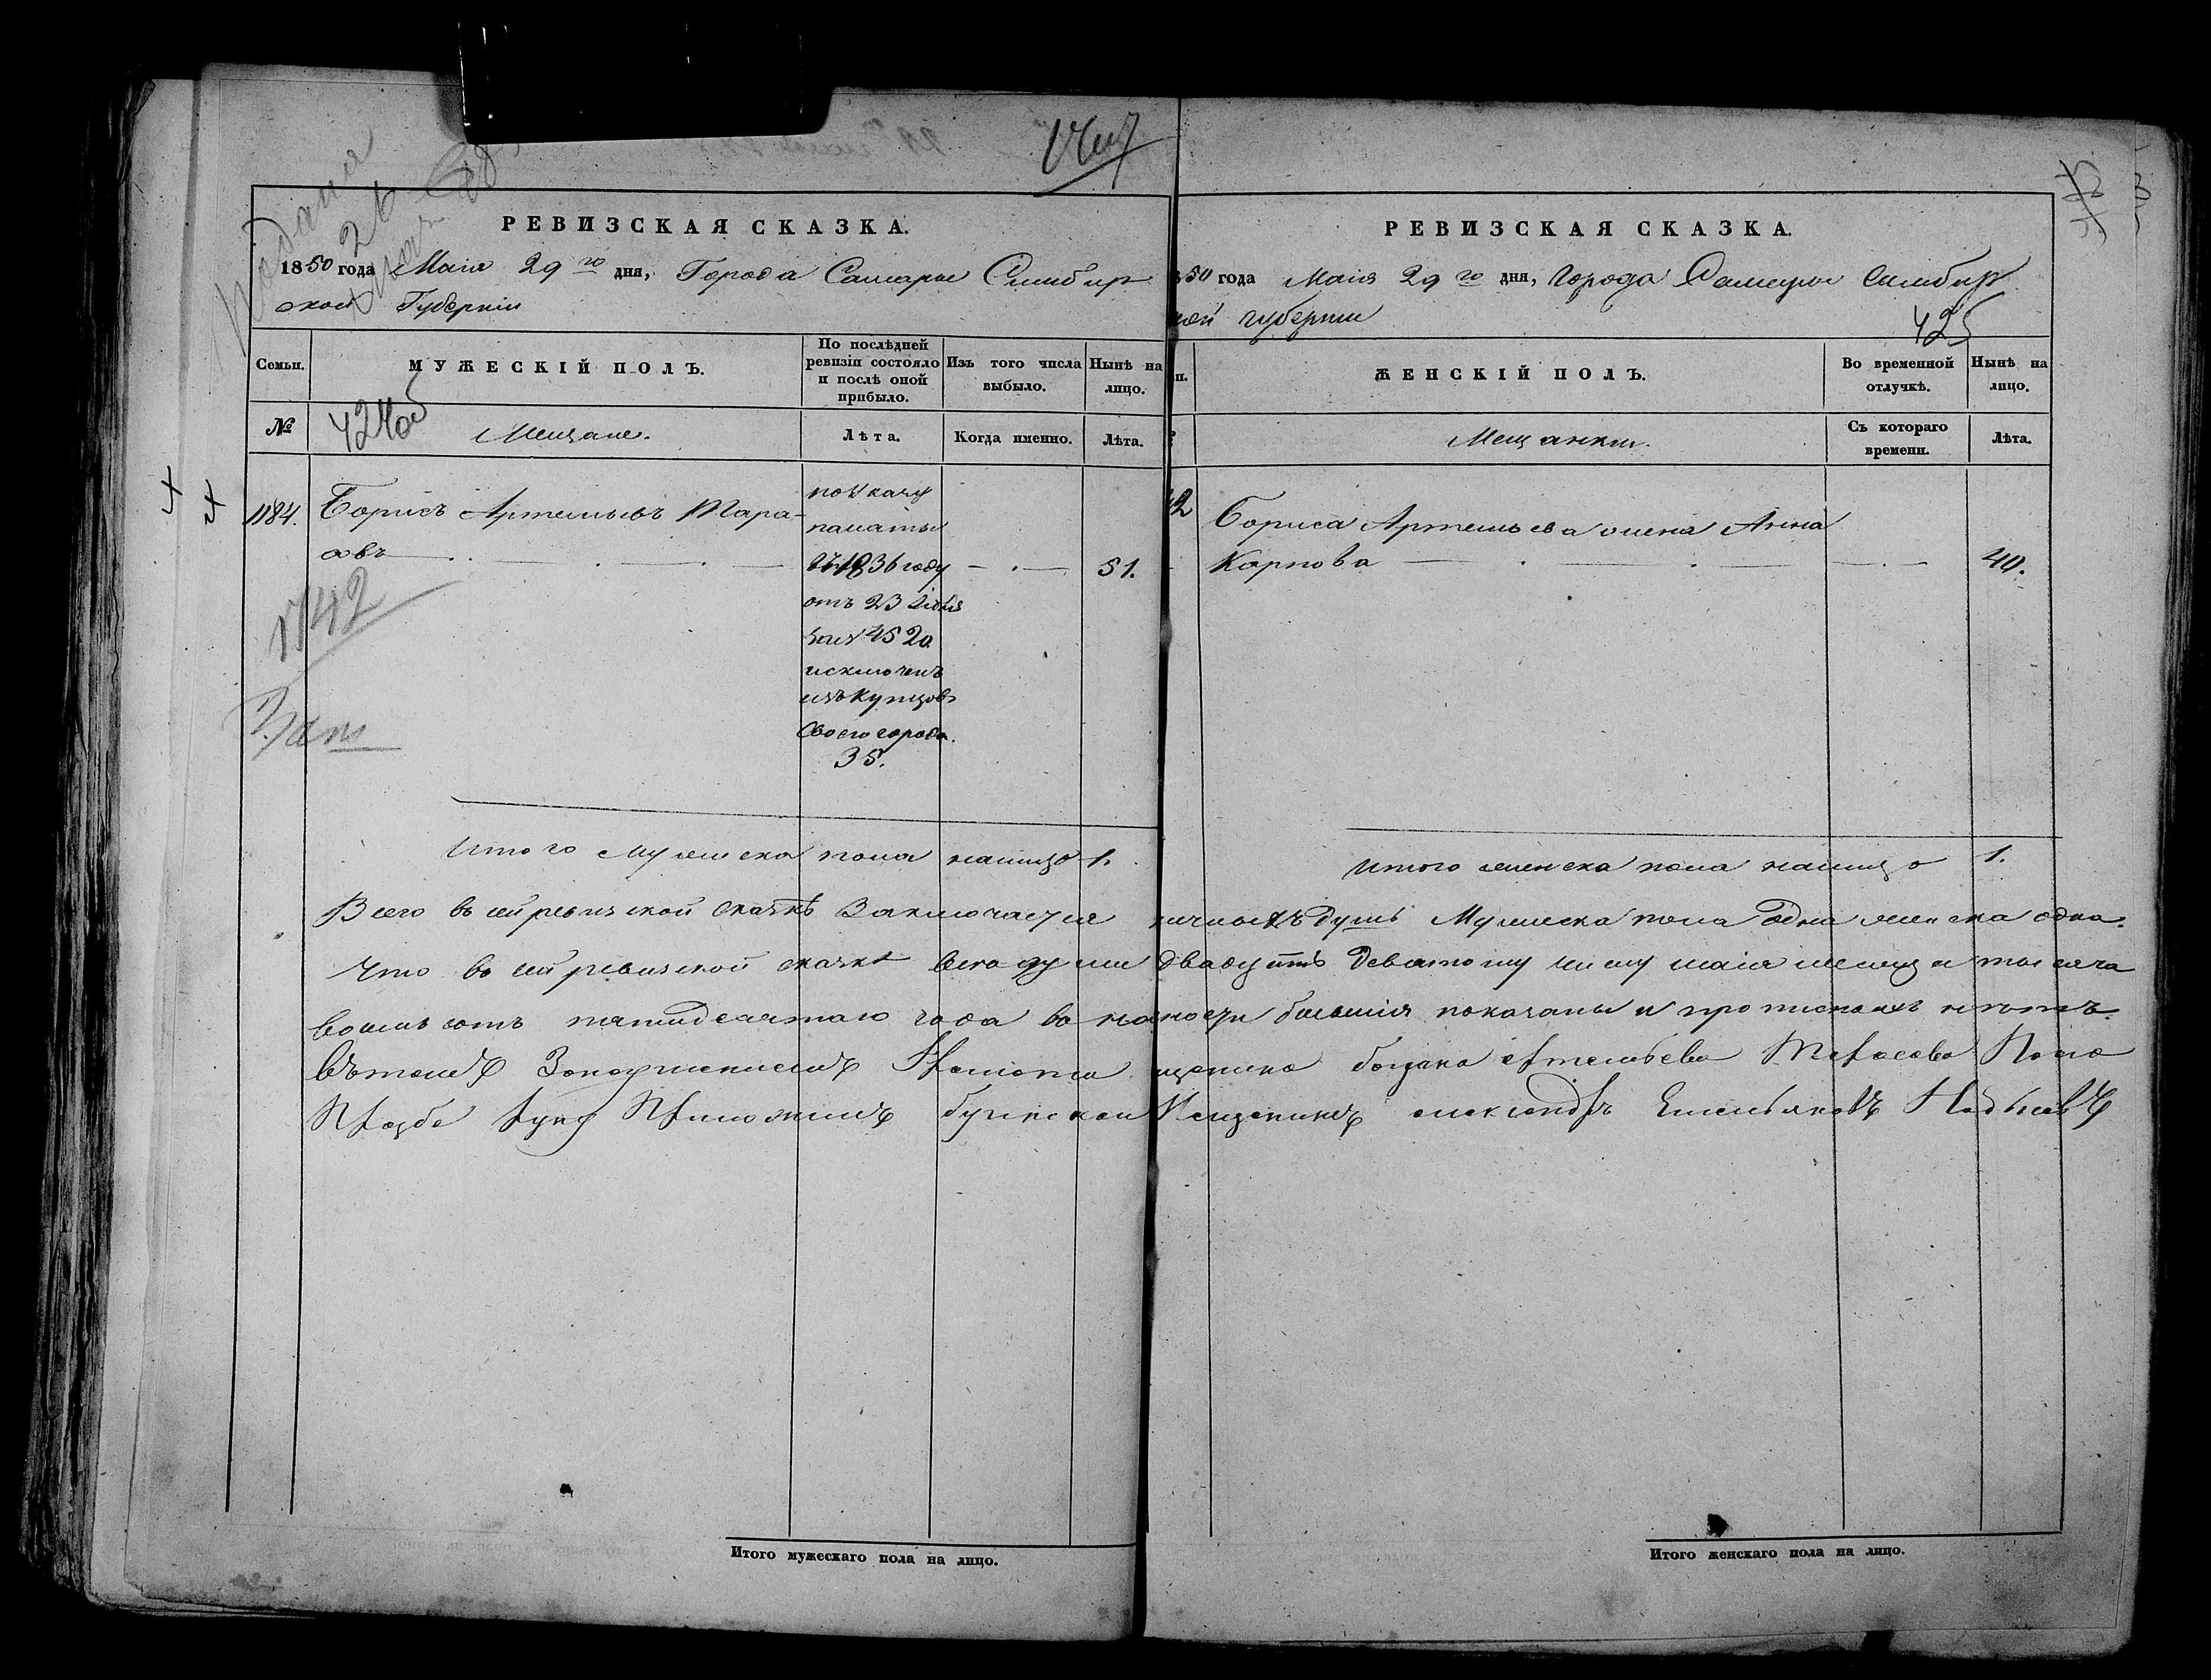 РЕВИЗСКАЯ СКАЗКА.
1850 года Маія 29го дня, Города Самары Симбир
ской Губерніи
Семьи.
МУЖЕСКІЙ ПОЛЪ.
По послѣдней ревизіи состояло и послѣ оной прибыло.
Изъ того числа выбыло.
Нынѣ на лицо.
№
424
Мещане.
Лѣта.
Когда именно.
Лѣта.
1184.
Борисъ Артемьевъ Тара-
совъ
51.
по Указу
палаты
1836 году
отъ 23
за № 4520
исключенъ
изъ купцовъ
своего города.
35.
1742
Итого мужеска пола налицо 1.
РЕВИЗСКАЯ СКАЗКА.
50 года Маія 29го дня, Города Самары Симбир
ской губерніи
425
ЖЕНСКІЙ ПОЛЪ.
Во временной отлучкѣ.
Нынѣ на лицо.
Мещанки.
Съ котораго времени.
Лѣта.
42
Бориса Артемьева жена Анна
Карпова
40.
Итого женска пола налицо 1.
Всего въ сей ревизской сказкѣ заключается наличныхъ душъ мужеска пола одна женска одна.
Что въ сей ревизской сказкѣ всѣ души двадцать девятому числу маія месяца тысяча
восемь сотъ пятидесятаго года въ наличности бывшія показаны и прописныхъ нѣтъ.
Въ томъ мещанина Бориса Артемьева Тарасова По его
Прозбе руку Приложилъ мещанинъ александръ Емельяновъ
Итого мужескаго пола на лицо.
Итого женскаго пола на лицо.